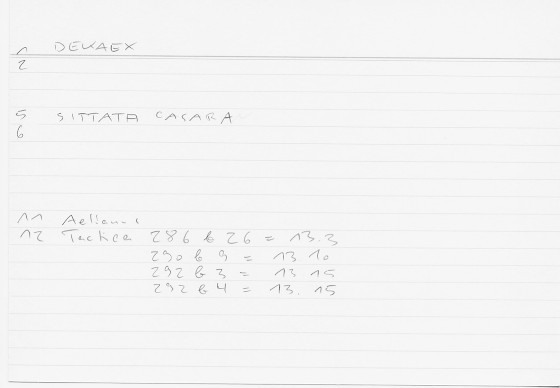 1 DEKAEX
2
5 SITTATA CACARA
6
11 Aeliani
12 Tactica 286 b 26 = 13.3
290 b 9 = 13 10
292 b 3 = 13 15
292 b 4 = 13. 15